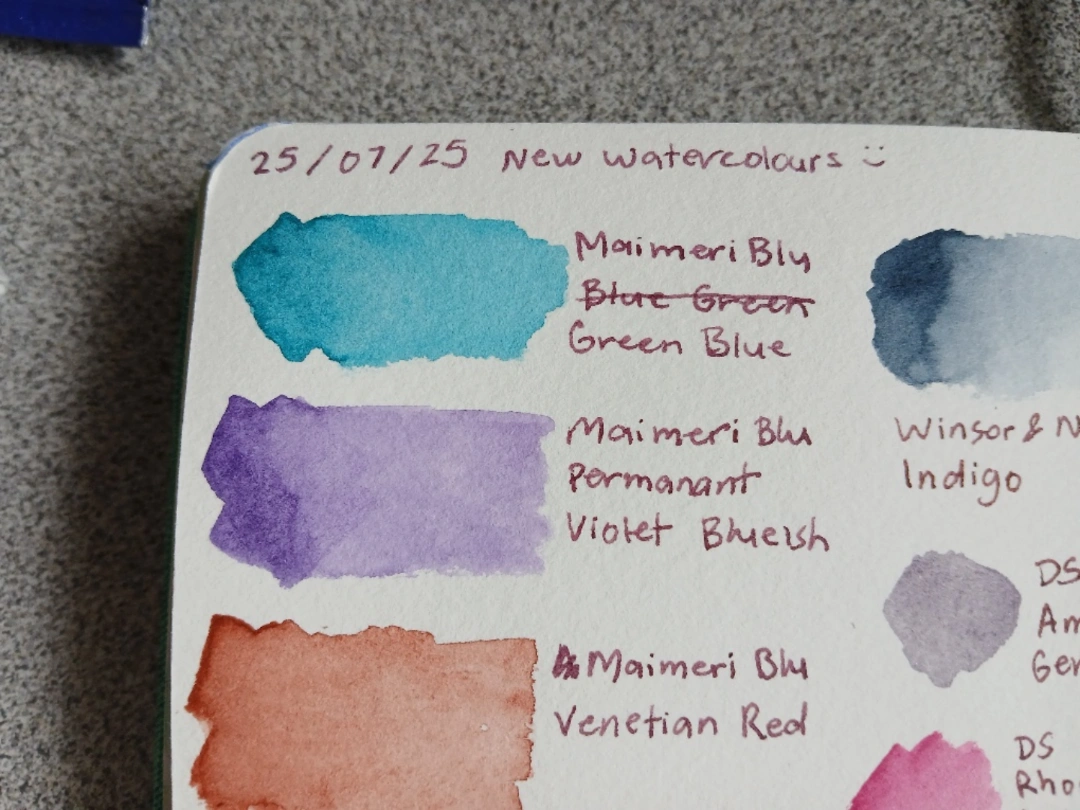 25/07/25 New Watercolours :)
Maimeri Blu
Blue Green
Green Blue
Maimeri Blu
Permanant
Violet Blueish
Maimeri Blu
Venetian Red
Winsor & N
Indigo
DS
Am
Gen
DS
Rho